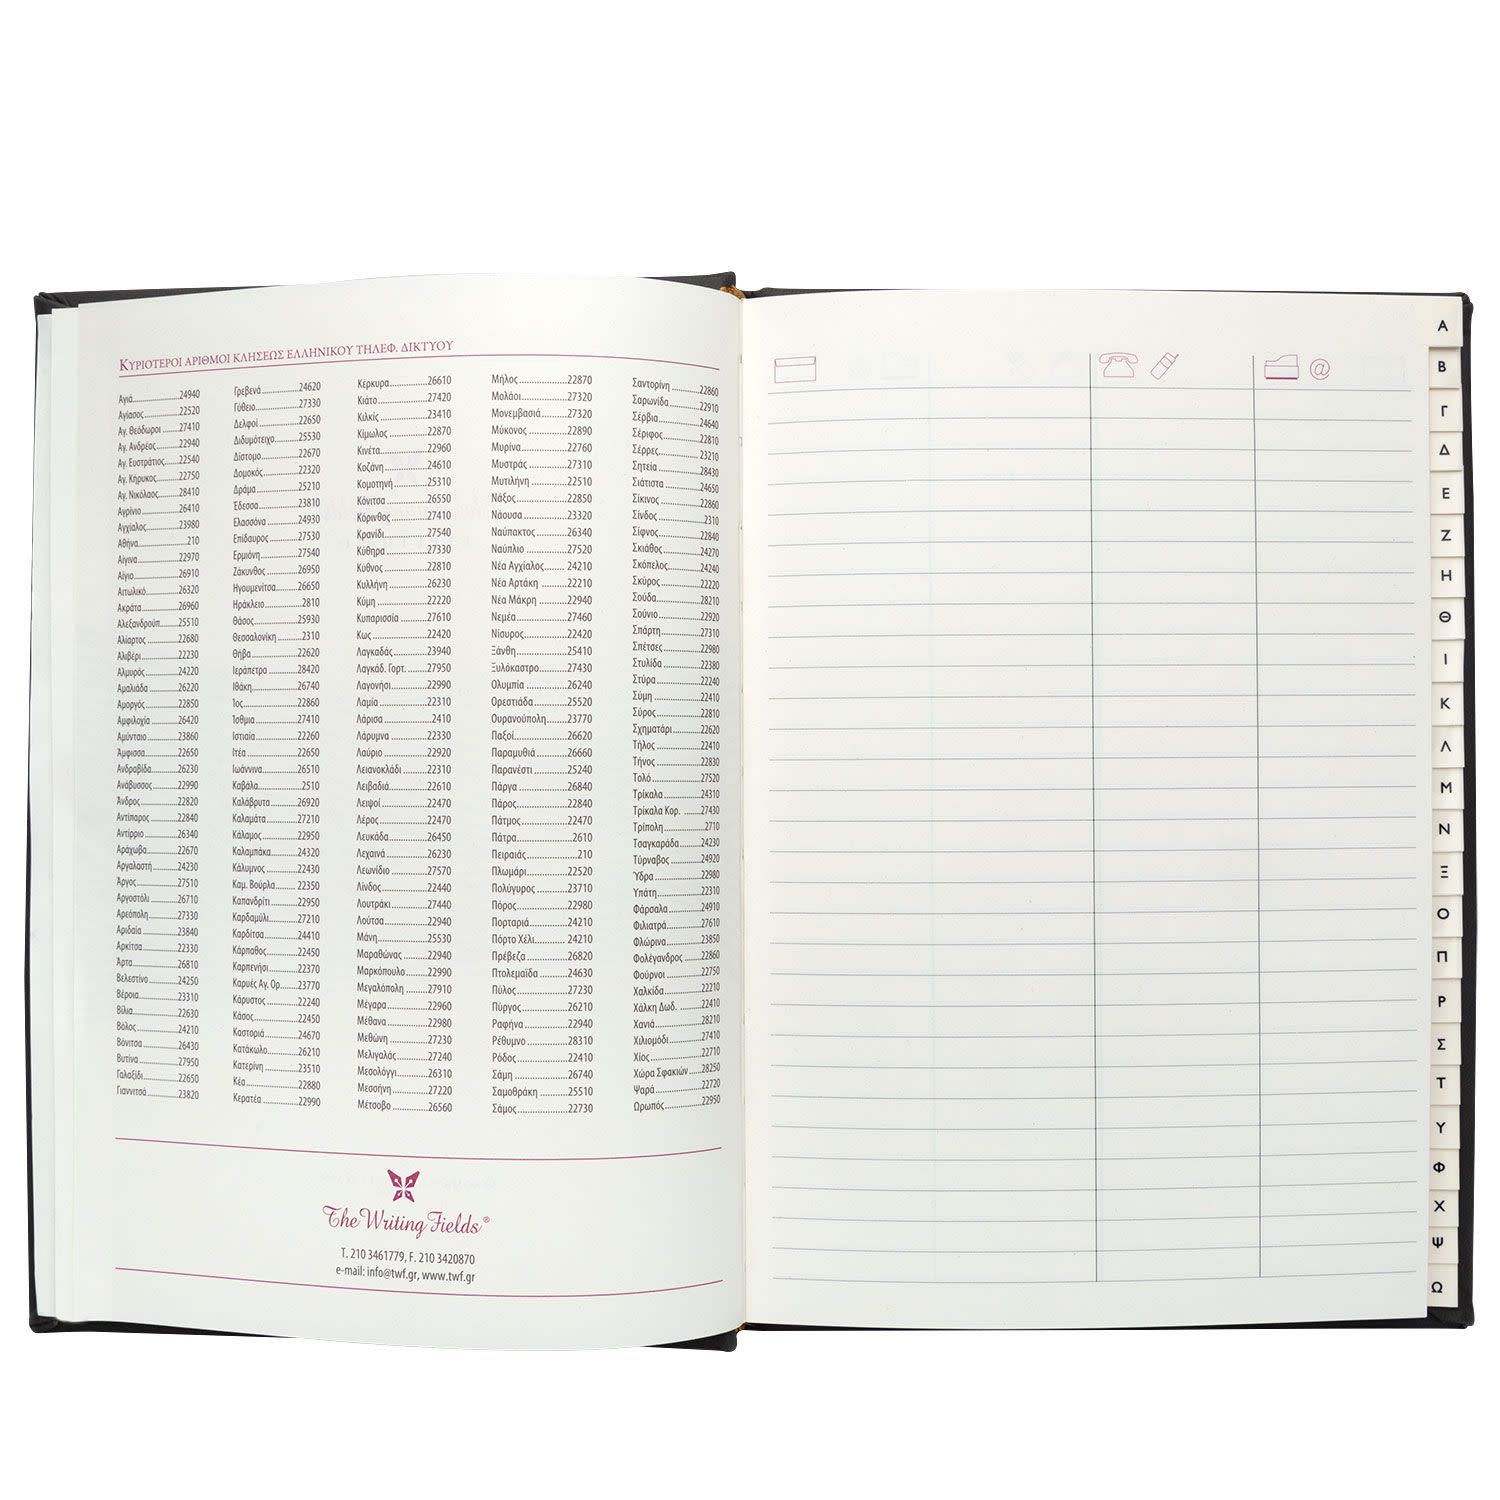 ΚΥΡΙΟΤΕΡΟΙ ΑΡΙΘΜΟΙ ΚΛΗΣΕΩΣ ΕΛΛΗΝΙΚΟΥ ΤΗΛΕΦ. ΔΙΚΤΥΟΥ
Αγιά 24940
Αγίασος 22520
Αγ. Θεόδωροι 27410
Αγ. Ανδρέας 22940
Αγ. Ευστράτιος 22540
Αγ. Κήρυκος 22750
Αγ. Νικόλαος 28410
Αγρίνιο 26410
Αγχίαλος 23980
Αθήνα 210
Αίγινα 22970
Αίγιο 26910
Αιτωλικό 26320
Ακράτα 26960
Αλεξανδρούπ. 25510
Αλίαρτος 22680
Αλιβέρι 22230
Αλμυρός 24220
Αμαλιάδα 26220
Αμοργός 22850
Αμφιλοχία 26420
Αμύνταιο 23860
Άμφισσα 22650
Ανδραβίδα 26230
Ανάβυσσος 22990
Άνδρος 22820
Αντίπαρος 22840
Αντίρριο 26340
Αράχωβα 22670
Αργαλαστή 24230
Άργος 27510
Αργοστόλι 26710
Αρεόπολη 27330
Αριδαία 23840
Αρκίτσα 22330
Άρτα 26810
Βελεστίνο 24250
Βέροια 23310
Βίλια 22630
Βόλος 24210
Βόνιτσα 26430
Βυτίνα 27950
Γαλαξίδι 22650
Γιαννιτσά 23820
Γρεβενά 24620
Γύθειο 27330
Δελφοί 22650
Διδυμότειχο 25530
Δίστομο 22670
Δομοκός 22320
Δράμα 25210
Έδεσσα 23810
Ελασσόνα 24930
Επίδαυρος 27530
Ερμιόνη 27540
Ζάκυνθος 26950
Ηγουμενίτσα 26650
Ηράκλειο 2810
Θάσος 25930
Θεσσαλονίκη 2310
Θήβα 22620
Ιεράπετρα 28420
Ιθάκη 26740
Ίος 22860
Ίσθμια 27410
Ιστιαία 22260
Ιτέα 22650
Ιωάννινα 26510
Καβάλα 2510
Καλάβρυτα 26920
Καλαμάτα 27210
Κάλαμος 22950
Καλαμπάκα 24320
Κάλυμνος 22430
Καμ. Βούρλα 22350
Καπανδρίτι 22950
Καρδαμύλι 27210
Καρδίτσα 24410
Κάρπαθος 22450
Καρπενήσι 22370
Καρυές Αγ. Ορ. 23770
Κάρυστος 22240
Κάσος 22450
Καστοριά 24670
Κατάκωλο 26210
Κατερίνη 23510
Κέα 22880
Κερατέα 22990
Κέρκυρα 26610
Κιάτο 27420
Κιλκίς 23410
Κίμωλος 22870
Κινέτα 22960
Κοζάνη 24610
Κομοτηνή 25310
Κόνιτσα 26550
Κόρινθος 27410
Κρανίδι 27540
Κύθηρα 27330
Κύθνος 22810
Κυλλήνη 26230
Κύμη 22220
Κυπαρισσία 27610
Κως 22420
Λαγκαδάς 23940
Λαγκάδ. Γορτ. 27950
Λαγονήσι 22990
Λαμία 22310
Λάρισα 2410
Λάρυμνα 22330
Λαύριο 22920
Λειανοκλάδι 22310
Λειβαδιά 22610
Λειψοί 22470
Λέρος 22470
Λευκάδα 26450
Λεχαινά 26230
Λεωνίδιο 27570
Λίνδος 22440
Λουτράκι 27440
Λούτσα 22940
Μάνη 25530
Μαραθώνας 22940
Μαρκόπουλο 22990
Μεγαλόπολη 27910
Μέγαρα 22960
Μέθανα 22980
Μεθώνη 27230
Μελιγαλάς 27240
Μεσολόγγι 26310
Μεσσήνη 27220
Μέτσοβο 26560
Μήλος 22870
Μολάοι 27320
Μονεμβασιά 27320
Μύκονος 22890
Μυρίνα 22760
Μυστράς 27310
Μυτιλήνη 22510
Νάξος 22850
Νάουσα 23320
Ναύπακτος 26340
Ναύπλιο 27520
Νέα Αγχίαλος 24210
Νέα Αρτάκη 22210
Νέα Μάκρη 22940
Νεμέα 27460
Νίσυρος 22420
Ξάνθη 25410
Ξυλόκαστρο 27430
Ολυμπία 26240
Ορεστιάδα 25520
Ουρανούπολη 23770
Παξοί 26620
Παραμυθιά 26660
Παρανέστι 25240
Πάργα 26840
Πάρος 22840
Πάτμος 22470
Πάτρα 2610
Πειραιάς 210
Πλωμάρι 22520
Πολύγυρος 23710
Πόρος 22980
Πορταριά 24210
Πόρτο Χέλι 24210
Πρέβεζα 26820
Πτολεμαϊδα 24630
Πύλος 27230
Πύργος 26210
Ραφήνα 22940
Ρέθυμνο 28310
Ρόδος 22410
Σάμη 26740
Σαμοθράκη 25510
Σάμος 22730
Σαντορίνη 22860
Σαρωνίδα 22910
Σέρβια 24640
Σέριφος 22810
Σέρρες 23210
Σητεία 28430
Σιάτιστα 24650
Σίκινος 22860
Σίνδος 2310
Σίφνος 22840
Σκιάθος 24270
Σκόπελος 24240
Σκύρος 22220
Σούδα 28210
Σούνιο 22920
Σπάρτη 27310
Σπέτσες 22980
Στυλίδα 22380
Στύρα 22240
Σύμη 22410
Σύρος 22810
Σχηματάρι 22620
Τήλος 22410
Τήνος 22830
Τολό 27520
Τρίκαλα 24310
Τρίκαλα Κορ. 27430
Τρίπολη 2710
Τσαγκαράδα 24230
Τύρναβος 24920
Ύδρα 22980
Υπάτη 22310
Φάρσαλα 24910
Φιλιατρά 27610
Φλώρινα 23850
Φολέγανδρος 22860
Φούρνοι 22750
Χαλκίδα 22210
Χάλκη Δωδ. 22410
Χανιά 28210
Χιλιομόδι 27410
Χίος 22710
Χώρα Σφακιών 28250
Ψαρά 22720
Ωρωπός 22950
The Writing Fields®
T. 210 3461779, F. 210 3420870
e-mail: info@twf.gr, www.twf.gr
@
Α
Β
Γ
Δ
Ε
Ζ
Η
Θ
Ι
Κ
Λ
Μ
Ν
Ξ
Ο
Π
Ρ
Σ
Τ
Υ
Φ
Χ
Ψ
Ω